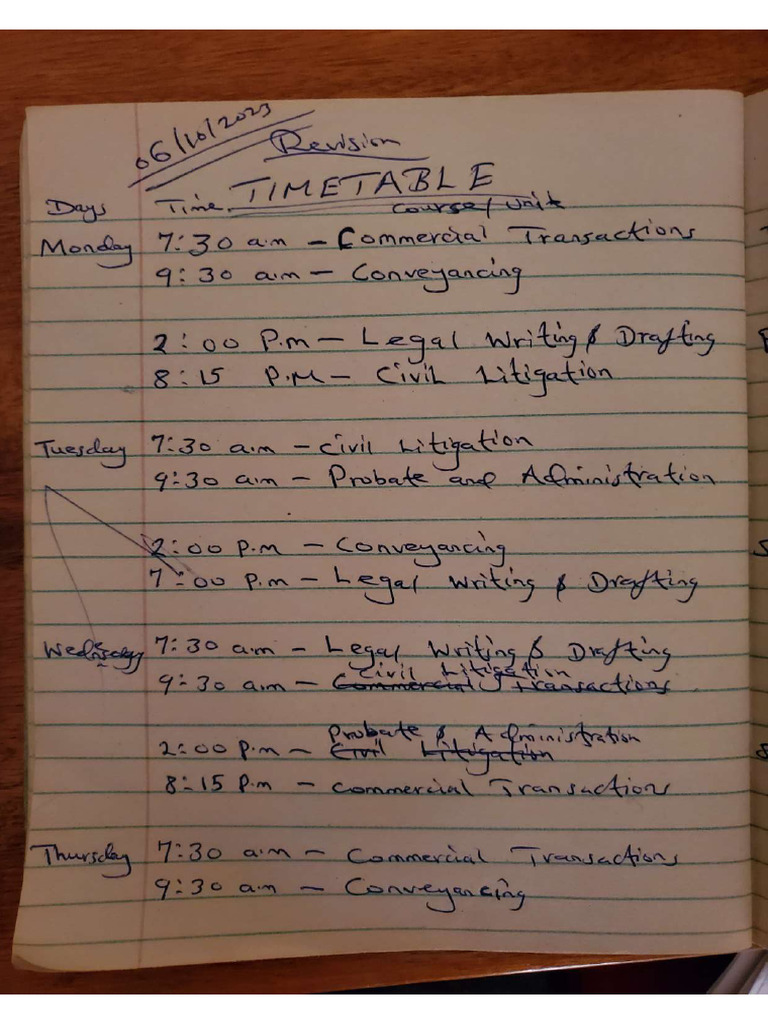 06/10/2023
Revision
TIMETABLE
Days Time Course/Unit
Monday 7:30 a.m – Commercial Transactions
9:30 a.m – Conveyancing
2:00 P.m – Legal Writing & Drafting
8:15 P.M – Civil Litigation
Tuesday 7:30 a.m – Civil Litigation
9:30 a.m – Probate and Administration
2:00 P.m – Conveyancing
7:00 P.m – Legal Writing & Drafting
Wednesday 7:30 a.m – Legal Writing & Drafting
Civil Litigation
9:30 a.m – Commercial Transactions
Probate & Administration
2:00 P.m – Civil Litigation
8:15 P.m – Commercial Transactions
Thursday 7:30 a.m – Commercial Transactions
9:30 a.m – Conveyancing